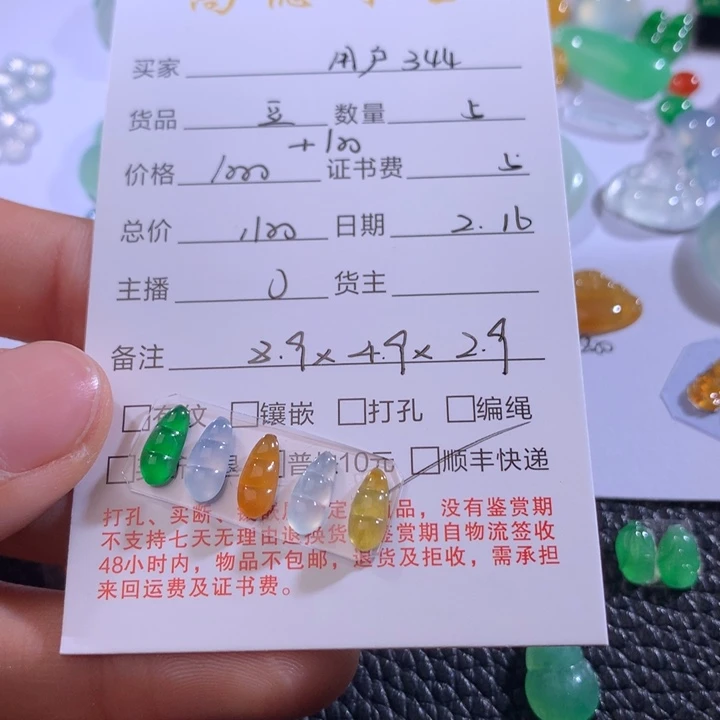 买家 用户344
货品 豆 数量 5
+100
价格 1000 证书费 5
总价 1100 日期 2.16
主播 0 货主
备注 8.9×4.9×2.9
镶嵌 打孔 编绳
10元 顺丰快递
打孔、买断、 品，没有鉴赏期
不支持七天无理由退换货 鉴赏期自物流签收
48小时内，物品不包邮，退货及拒收，需承担
来回运费及证书费。
200